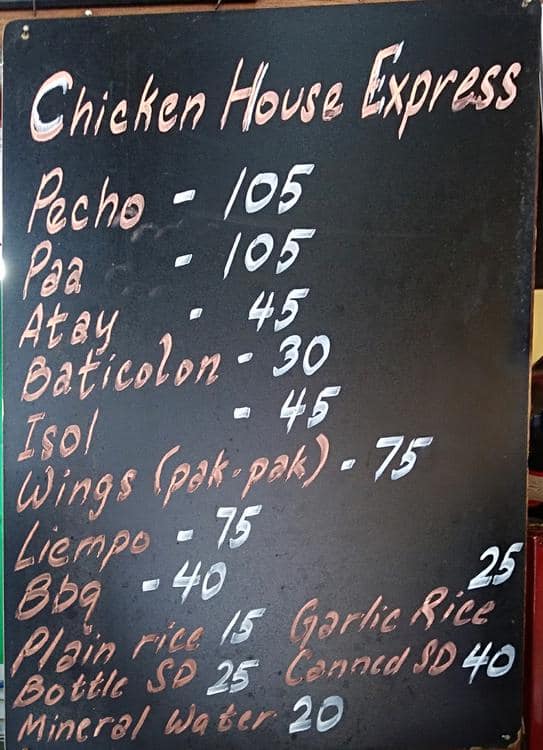 Chicken House Express
Pecho - 105
Paa - 105
Atay - 45
Baticolon - 30
Isol - 45
Wings (pak-pak) - 75
Liempo - 75
Bbq - 40
Plain rice 15 Garlic Rice 25
Bottle SD 25 Canned SD 40
Mineral Water 20